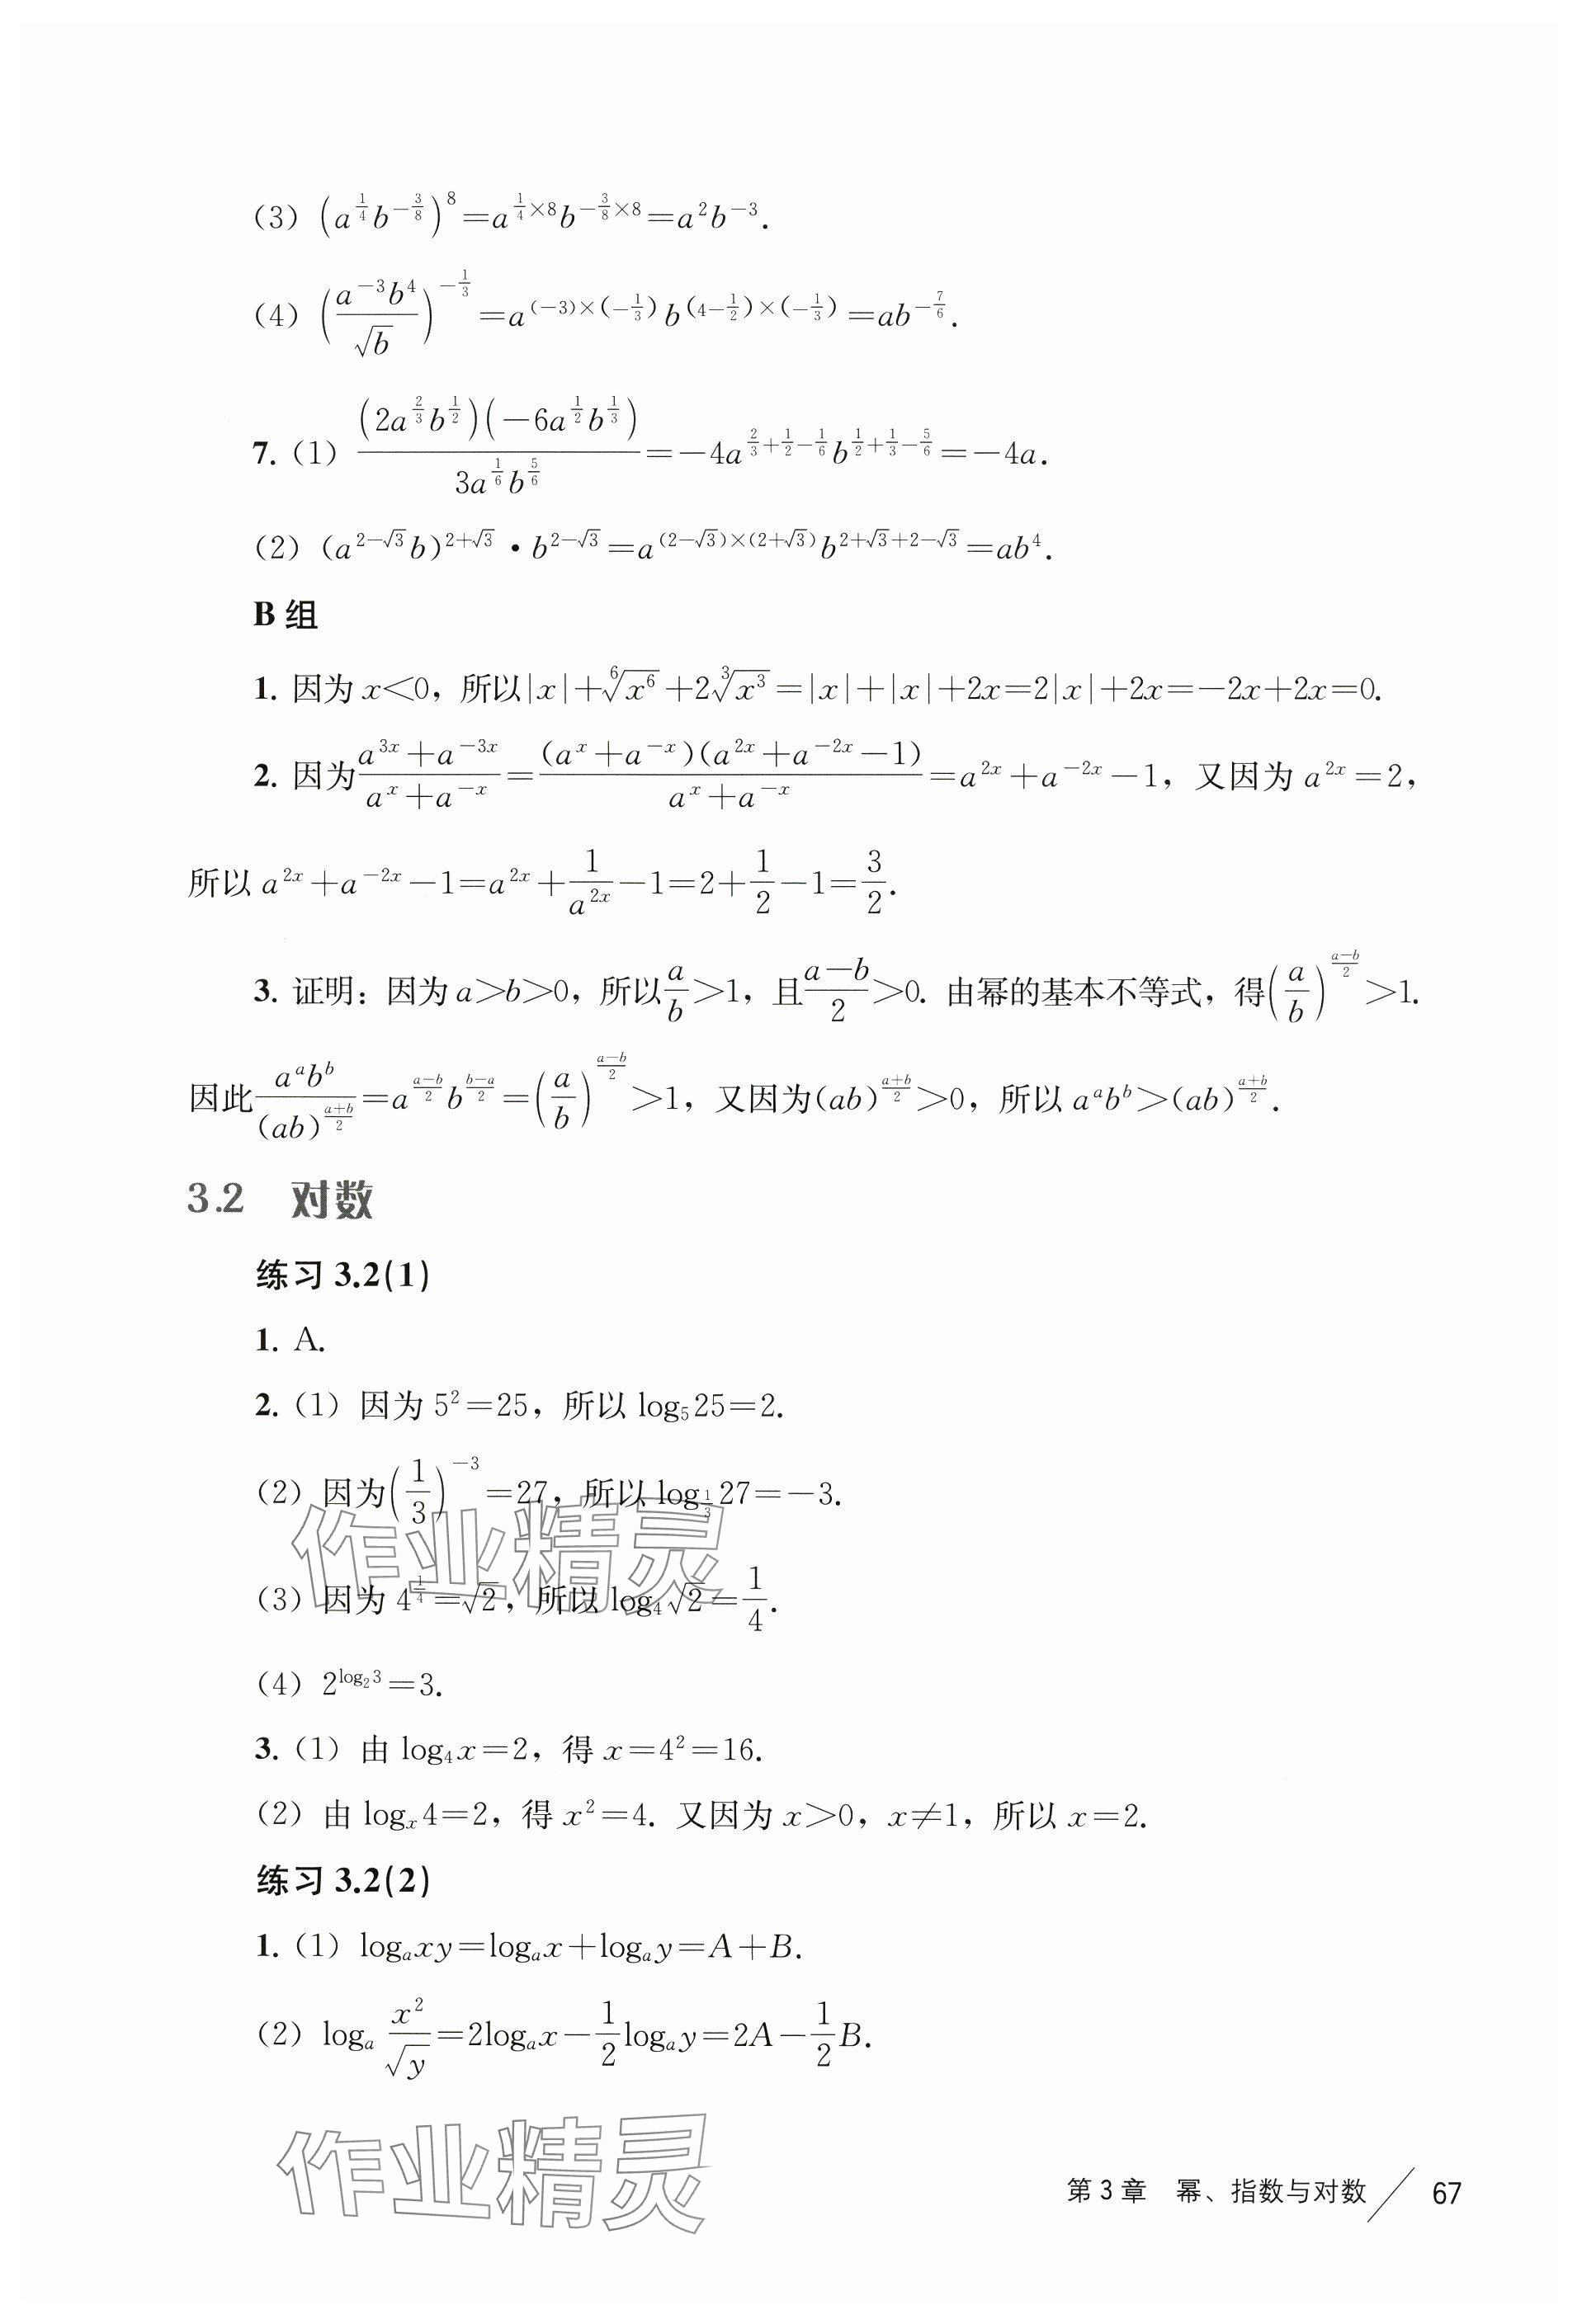 (3) $\left(a^{\frac{1}{4}}b^{-\frac{3}{8}}\right)^{8}=a^{\frac{1}{4}\times 8}b^{-\frac{3}{8}\times 8}=a^{2}b^{-3}$.
(4) $\left(\frac{a^{-3}b^{4}}{\sqrt{b}}\right)^{-\frac{1}{3}}=a^{(-3)\times(-\frac{1}{3})}b^{(4-\frac{1}{2})\times(-\frac{1}{3})}=ab^{-\frac{7}{6}}$.
7. (1) $\frac{\left(2a^{\frac{2}{3}}b^{\frac{1}{2}}\right)\left(-6a^{\frac{1}{2}}b^{\frac{1}{3}}\right)}{3a^{\frac{1}{6}}b^{\frac{5}{6}}}=-4a^{\frac{2}{3}+\frac{1}{2}-\frac{1}{6}}b^{\frac{1}{2}+\frac{1}{3}-\frac{5}{6}}=-4a$.
(2) $(a^{2-\sqrt{3}}b)^{2+\sqrt{3}}\cdot b^{2-\sqrt{3}}=a^{(2-\sqrt{3})\times(2+\sqrt{3})}b^{2+\sqrt{3}+2-\sqrt{3}}=ab^{4}$.
B 组
1. 因为 $x<0$，所以$|x|+\sqrt[6]{x^{6}}+2\sqrt[3]{x^{3}}=|x|+|x|+2x=2|x|+2x=-2x+2x=0$.
2. 因为$\frac{a^{3x}+a^{-3x}}{a^{x}+a^{-x}}=\frac{(a^{x}+a^{-x})(a^{2x}+a^{-2x}-1)}{a^{x}+a^{-x}}=a^{2x}+a^{-2x}-1$，又因为 $a^{2x}=2$，
所以 $a^{2x}+a^{-2x}-1=a^{2x}+\frac{1}{a^{2x}}-1=2+\frac{1}{2}-1=\frac{3}{2}$.
3. 证明：因为 $a>b>0$，所以$\frac{a}{b}>1$，且$\frac{a-b}{2}>0$. 由幂的基本不等式，得$\left(\frac{a}{b}\right)^{\frac{a-b}{2}}>1$.
因此$\frac{a^{a}b^{b}}{(ab)^{\frac{a+b}{2}}}=a^{\frac{a-b}{2}}b^{\frac{b-a}{2}}=\left(\frac{a}{b}\right)^{\frac{a-b}{2}}>1$，又因为$(ab)^{\frac{a+b}{2}}>0$，所以 $a^{a}b^{b}>(ab)^{\frac{a+b}{2}}$.
3.2 对数
练习 3.2(1)
1. A.
2. (1) 因为 $5^{2}=25$，所以 $\log_{5}25=2$.
(2) 因为$\left(\frac{1}{3}\right)^{-3}=27$，所以 $\log_{\frac{1}{3}}27=-3$.
(3) 因为 $4^{\frac{1}{4}}=\sqrt{2}$，所以 $\log_{4}\sqrt{2}=\frac{1}{4}$.
作业精灵
(4) $2^{\log_{2}3}=3$.
3. (1) 由 $\log_{4}x=2$，得 $x=4^{2}=16$.
(2) 由 $\log_{x}4=2$，得 $x^{2}=4$. 又因为 $x>0$，$x\neq 1$，所以 $x=2$.
练习 3.2(2)
1. (1) $\log_{a}xy=\log_{a}x+\log_{a}y=A+B$.
(2) $\log_{a}\frac{x^{2}}{\sqrt{y}}=2\log_{a}x-\frac{1}{2}\log_{a}y=2A-\frac{1}{2}B$.
作业精灵
第 3 章 幂、指数与对数 / 67